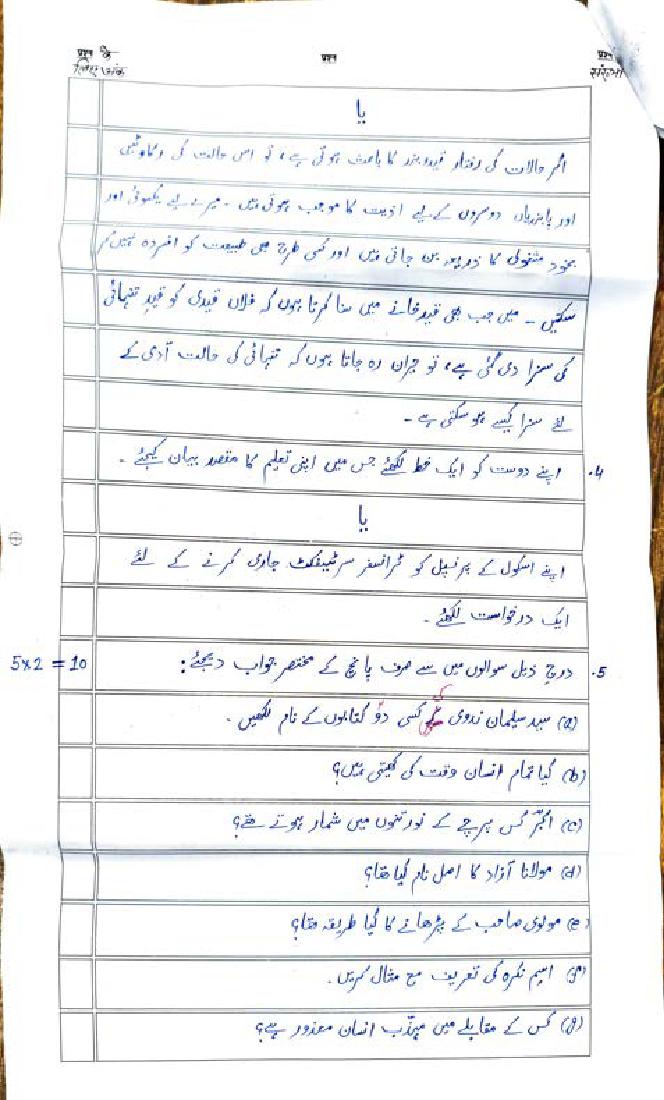 प्रश्न के लिए अंक
प्रश्न
प्रश्न संख्या
یا
اگر حالات کی رفتار قید و بند کا باعث ہوتی ہے، تو اس حالت کی رکاوٹیں
اور پابندیاں دوسروں کے لیے اذیت کا موجب ہوتی ہیں۔ میرے لیے یکسوئی اور
بخود مشغولی کا ذریعہ بن جاتی ہیں اور کسی طرح بھی طبیعت کو افسردہ نہیں کر
سکتیں۔ میں جب بھی قید خانے میں سنا کرتا ہوں کہ فلاں قیدی کو قید تنہائی
کی سزا دی گئی ہے، تو حیران رہ جاتا ہوں کہ تنہائی کی حالت آدمی کے
لئے سزا کیسے ہو سکتی ہے۔
4. اپنے دوست کو ایک خط لکھئے جس میں اپنی تعلیم کا مقصد بیان کیجئے۔
یا
اپنے اسکول کے پرنسپل کو ٹرانسفر سرٹیفکٹ جاری کرنے کے لئے
ایک درخواست لکھئے۔
5. درج ذیل سوالوں میں سے صرف پانچ کے مختصر جواب دیجئے: 5x2 = 10
(a) سید سلیمان ندوی کی کسی دو کتابوں کے نام لکھیں۔
(b) کیا تمام انسان وقت کی کھیتی ہیں؟
(c) اکبرؔ کس پرچے کے نورتنوں میں شمار ہوتے تھے؟
(d) مولانا آزاد کا اصل نام کیا تھا؟
(e) مولوی صاحب کے پڑھانے کا کیا طریقہ تھا؟
(f) اسم نکرہ کی تعریف مع مثال کریں۔
(g) کس کے مقابلے میں مہذّب انسان معذور ہے؟